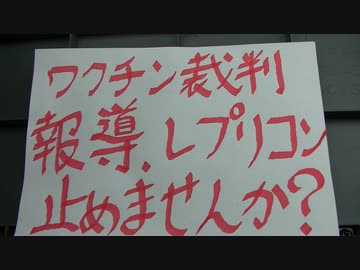 ワクチン裁判
報導、レプリコン
止めませんか?